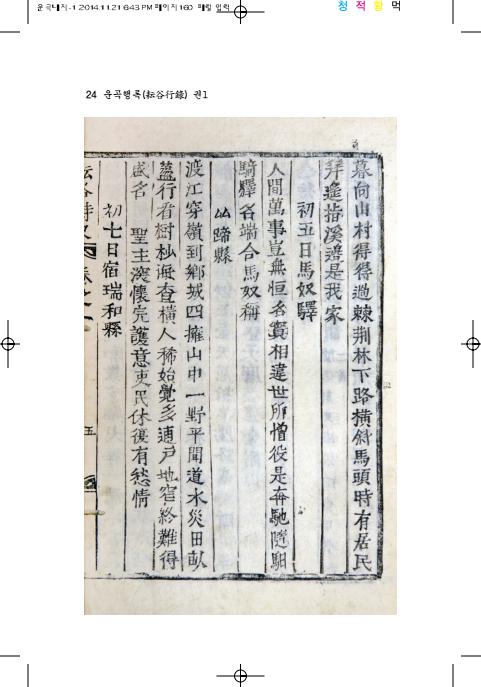 운곡내지-1 2014.11.21 6:43 PM 페이지160 매일 입력
청 적 황 먹
24 운곡행록(耘谷行錄) 권1
暮向山村得得過棘荆林下路橫斜馬頭時有居民
拜遙指溪邊是我家
初五日馬奴驛
人間萬事豈無恒名實相違世所憎役是奔馳隨馹
騎驛名端合馬奴稱
麟蹄縣
渡江穿嶺到鄉城四擁山中一野平聞道水災田畝
蓋行看樹杪海査橫人稀始覺多逋戶地窄終難得
盛名 聖主深懷完護意吏民休復有愁情
初七日宿瑞和縣
耘谷詩史 卷之一
五